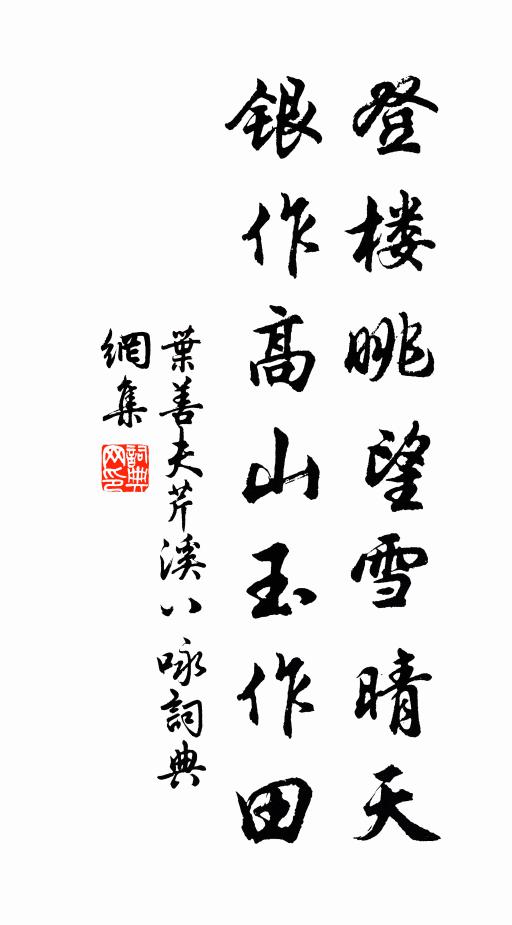 登楼眺望雪晴天
銀作高山玉作田
葉善夫芹溪八咏詞典
網集
詞典
网印